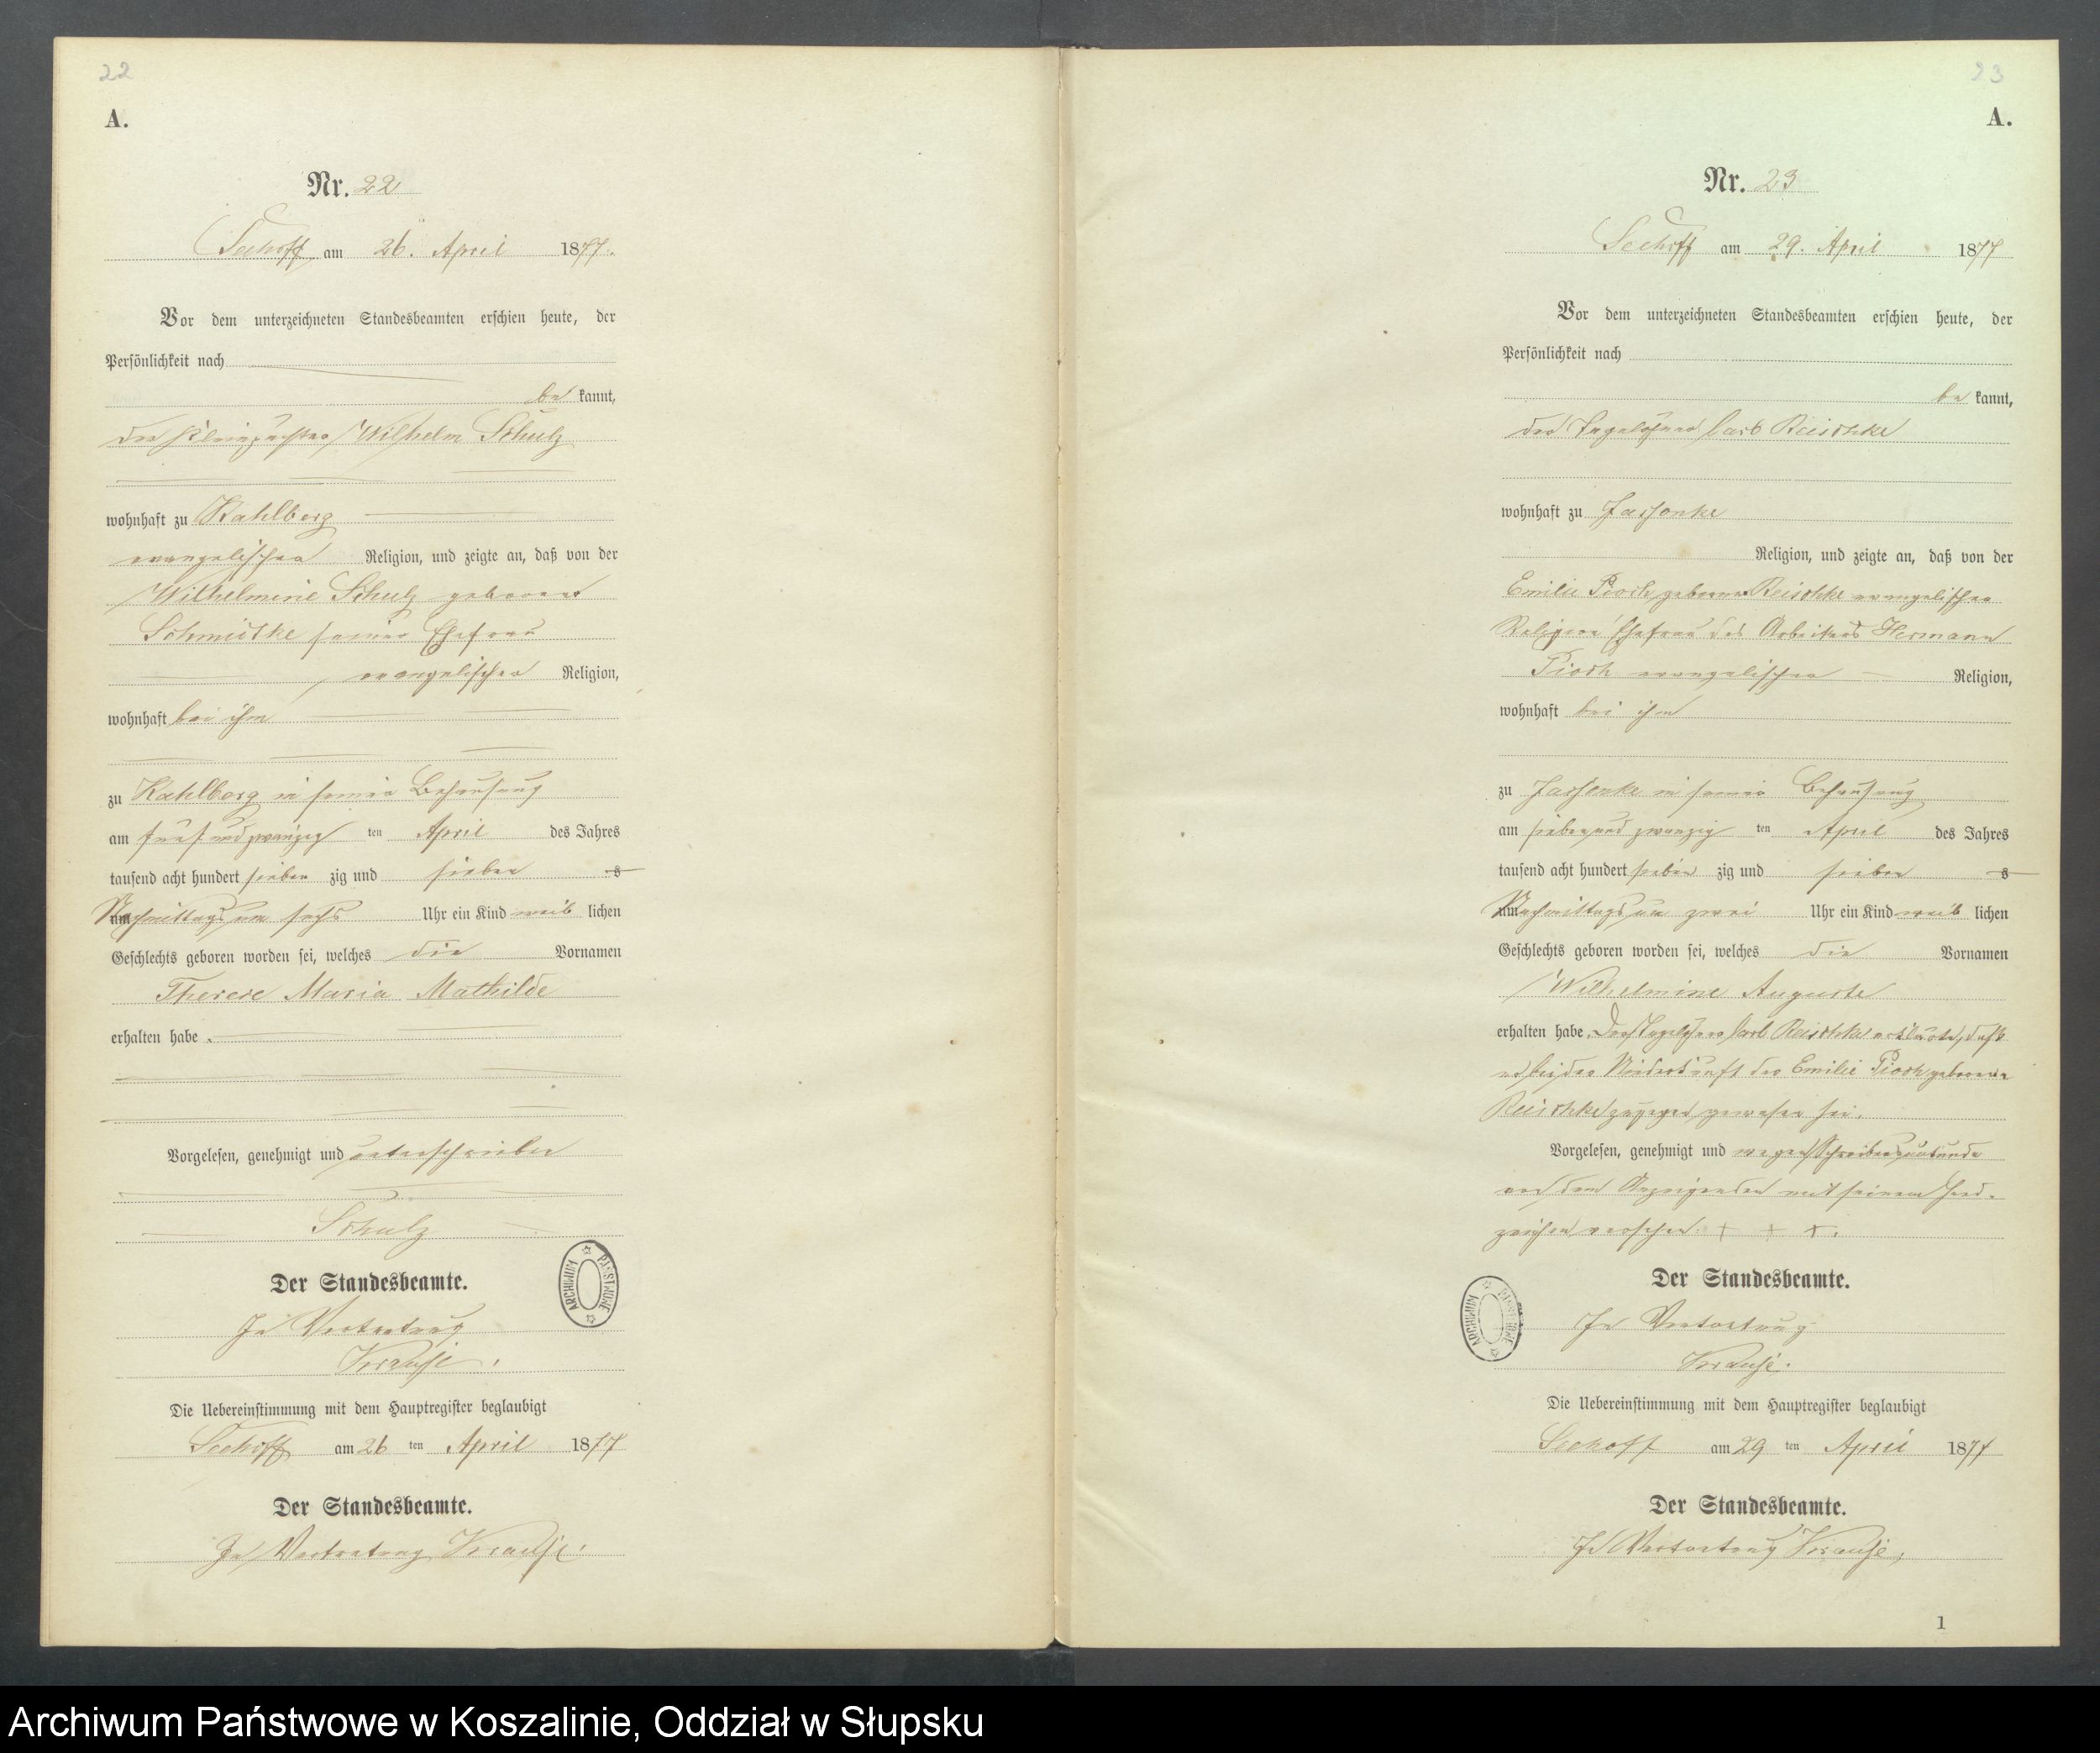 22
A.
Nr. 22
Seehoff am 26. April 1877.
Vor dem unterzeichneten Standesbeamten erschien heute, der
Persönlichkeit nach
be kannt,
der Kleinpächter Wilhelm Schulz
wohnhaft zu Kahlberg
evangelischer Religion, und zeigte an, daß von der
Wilhelmine Schulz geborene
Schmidtke seiner Ehefrau
evangelischer Religion,
wohnhaft bei ihm
zu Kahlberg in seiner Behausung
am fünf und zwanzig ten April des Jahres
tausend acht hundert sieben zig und sieben s
Nachmittags um sechs Uhr ein Kind weib lichen
Geschlechts geboren worden sei, welches die Vornamen
Therese Maria Mathilde
erhalten habe.
Vorgelesen, genehmigt und unterschrieben
Schulz
Der Standesbeamte.
In Vertretung
Krause.
Die Uebereinstimmung mit dem Hauptregister beglaubigt
Seehoff am 26 ten April 1877
Der Standesbeamte.
In Vertretung Krause.
ARCHIWUM PAŃSTWOWE
23
A.
Nr. 23
Seehoff am 29. April 1877
Vor dem unterzeichneten Standesbeamten erschien heute, der
Persönlichkeit nach
be kannt,
der Tagelöhner Carl Reischke
wohnhaft zu Jassonke
Religion, und zeigte an, daß von der
Emilie Pioch geborene Reischke evangelischer
Religion Ehefrau des Arbeiters Hermann
Pioch evangelischer Religion,
wohnhaft bei ihm
zu Jassonke in seiner Behausung
am sieben und zwanzig ten April des Jahres
tausend acht hundert sieben zig und sieben s
Nachmittags um zwei Uhr ein Kind weib lichen
Geschlechts geboren worden sei, welches die Vornamen
Wilhelmine Auguste
erhalten habe. Der Tagelöhner Carl Reischke erklärte, daß
er bei der Niederkunft der Emilie Pioch geborene
Reischke zugegen gewesen sei.
Vorgelesen, genehmigt und wegen Schreibensunkunde
von dem Anzeigenden mit seinem Hand-
zeichen versehen. + + +.
Der Standesbeamte.
In Vertretung
Krause.
Die Uebereinstimmung mit dem Hauptregister beglaubigt
Seehoff am 29 ten April 1877
Der Standesbeamte.
In Vertretung Krause.
ARCHIWUM PAŃSTWOWE
1
Archiwum Państwowe w Koszalinie, Oddział w Słupsku